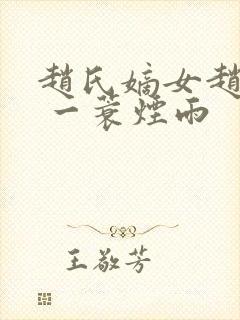 趙氏嫡女趙
一蓑煙雨
王敬芳